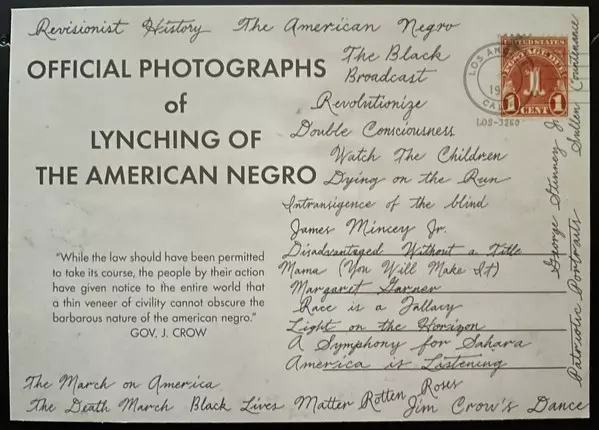 Revisionist History The American Negro
OFFICIAL PHOTOGRAPHS
of
LYNCHING OF
THE AMERICAN NEGRO
"While the law should have been permitted
to take its course, the people by their action
have given notice to the entire world that
a thin veneer of civility cannot obscure the
barbarous nature of the american negro."
GOV, J. CROW
The Black
Broadcast
Revolutionize
Double Consciousness
Watch The Children
Dying on the Run
Intransigence of the blind
James Mincey Jr.
Disadvantaged Without a Title
Mama (You Will Make It)
Margaret Garner
Race is a Fallacy
Light on the Horizon
A Symphony for Sahara
America is Listening
LOS
19
CAL
LOS-3260
UNITED STATES
POSTAGE DUE
1 1
CENT
George Stinney Jr.
Sullen Countenance
Patriotic Portraits
The March on America
The Death March Black Lives Matter Rotten Roses Jim Crow's Dance